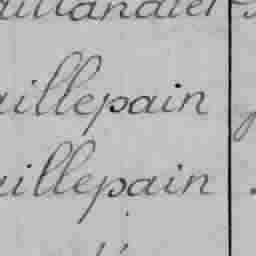 aillandier
aillepain
aillepain